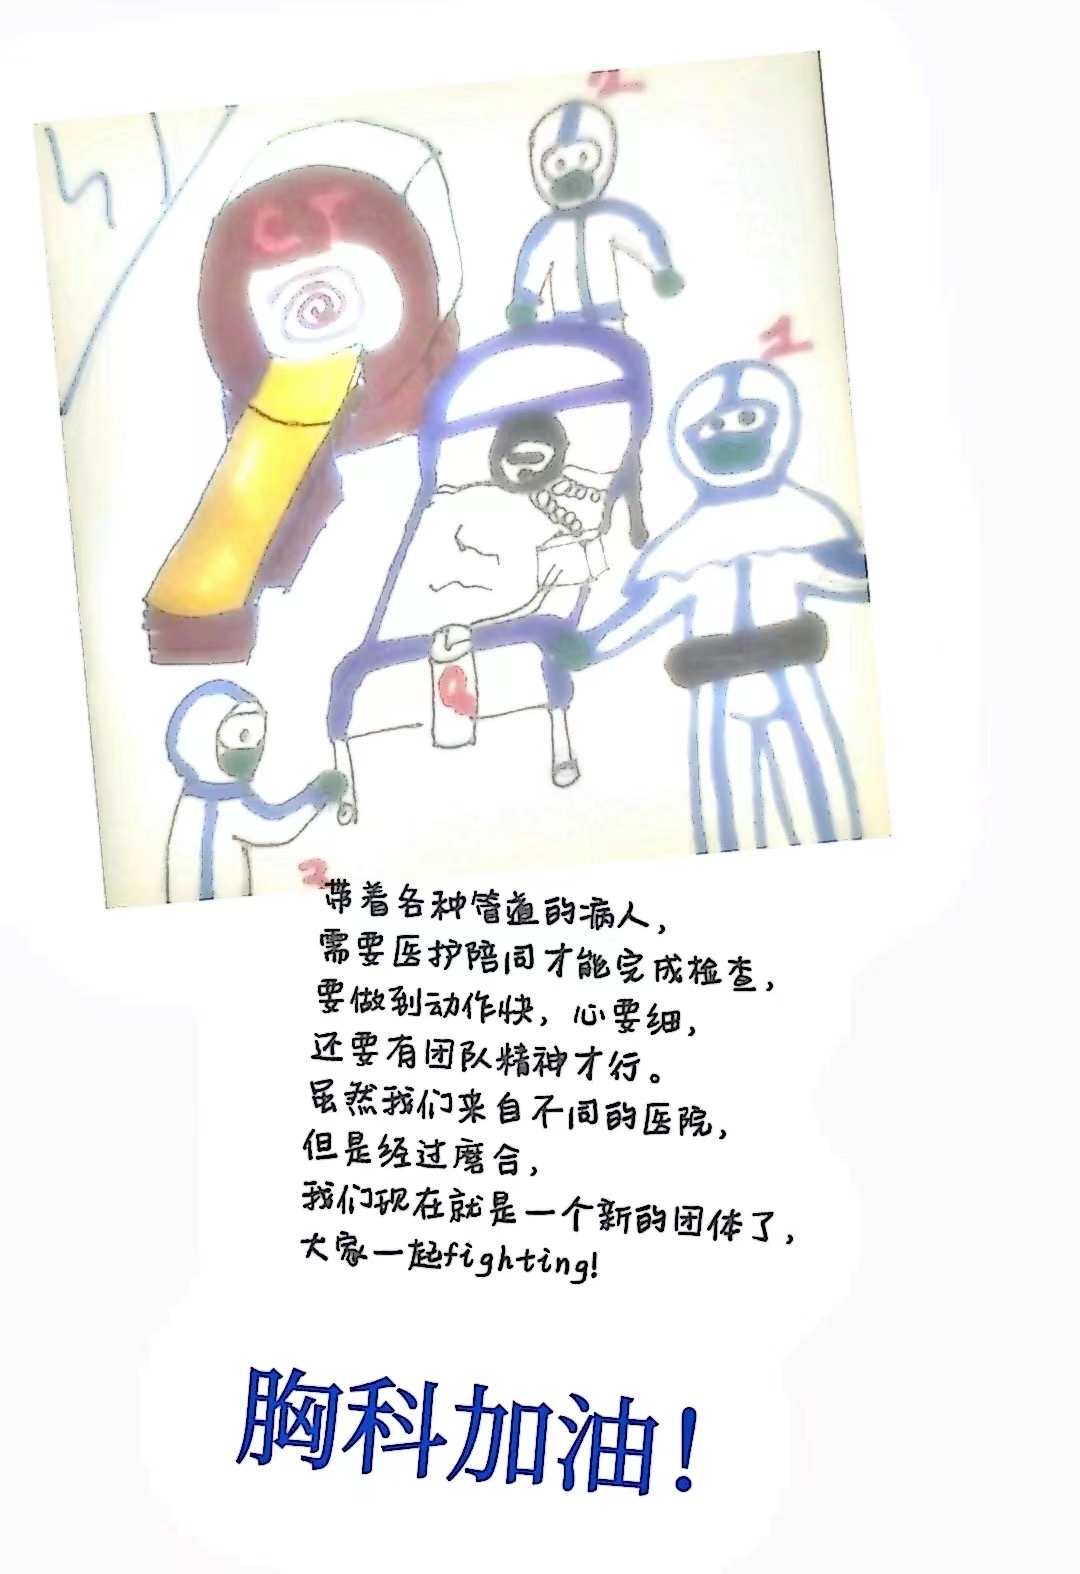 CT
2
1
3
带着各种管道的病人，
需要医护陪同才能完成检查，
要做到动作快，心要细，
还要有团队精神才行。
虽然我们来自不同的医院，
但是经过磨合，
我们现在就是一个新的团体了，
大家一起fighting!
胸科加油！